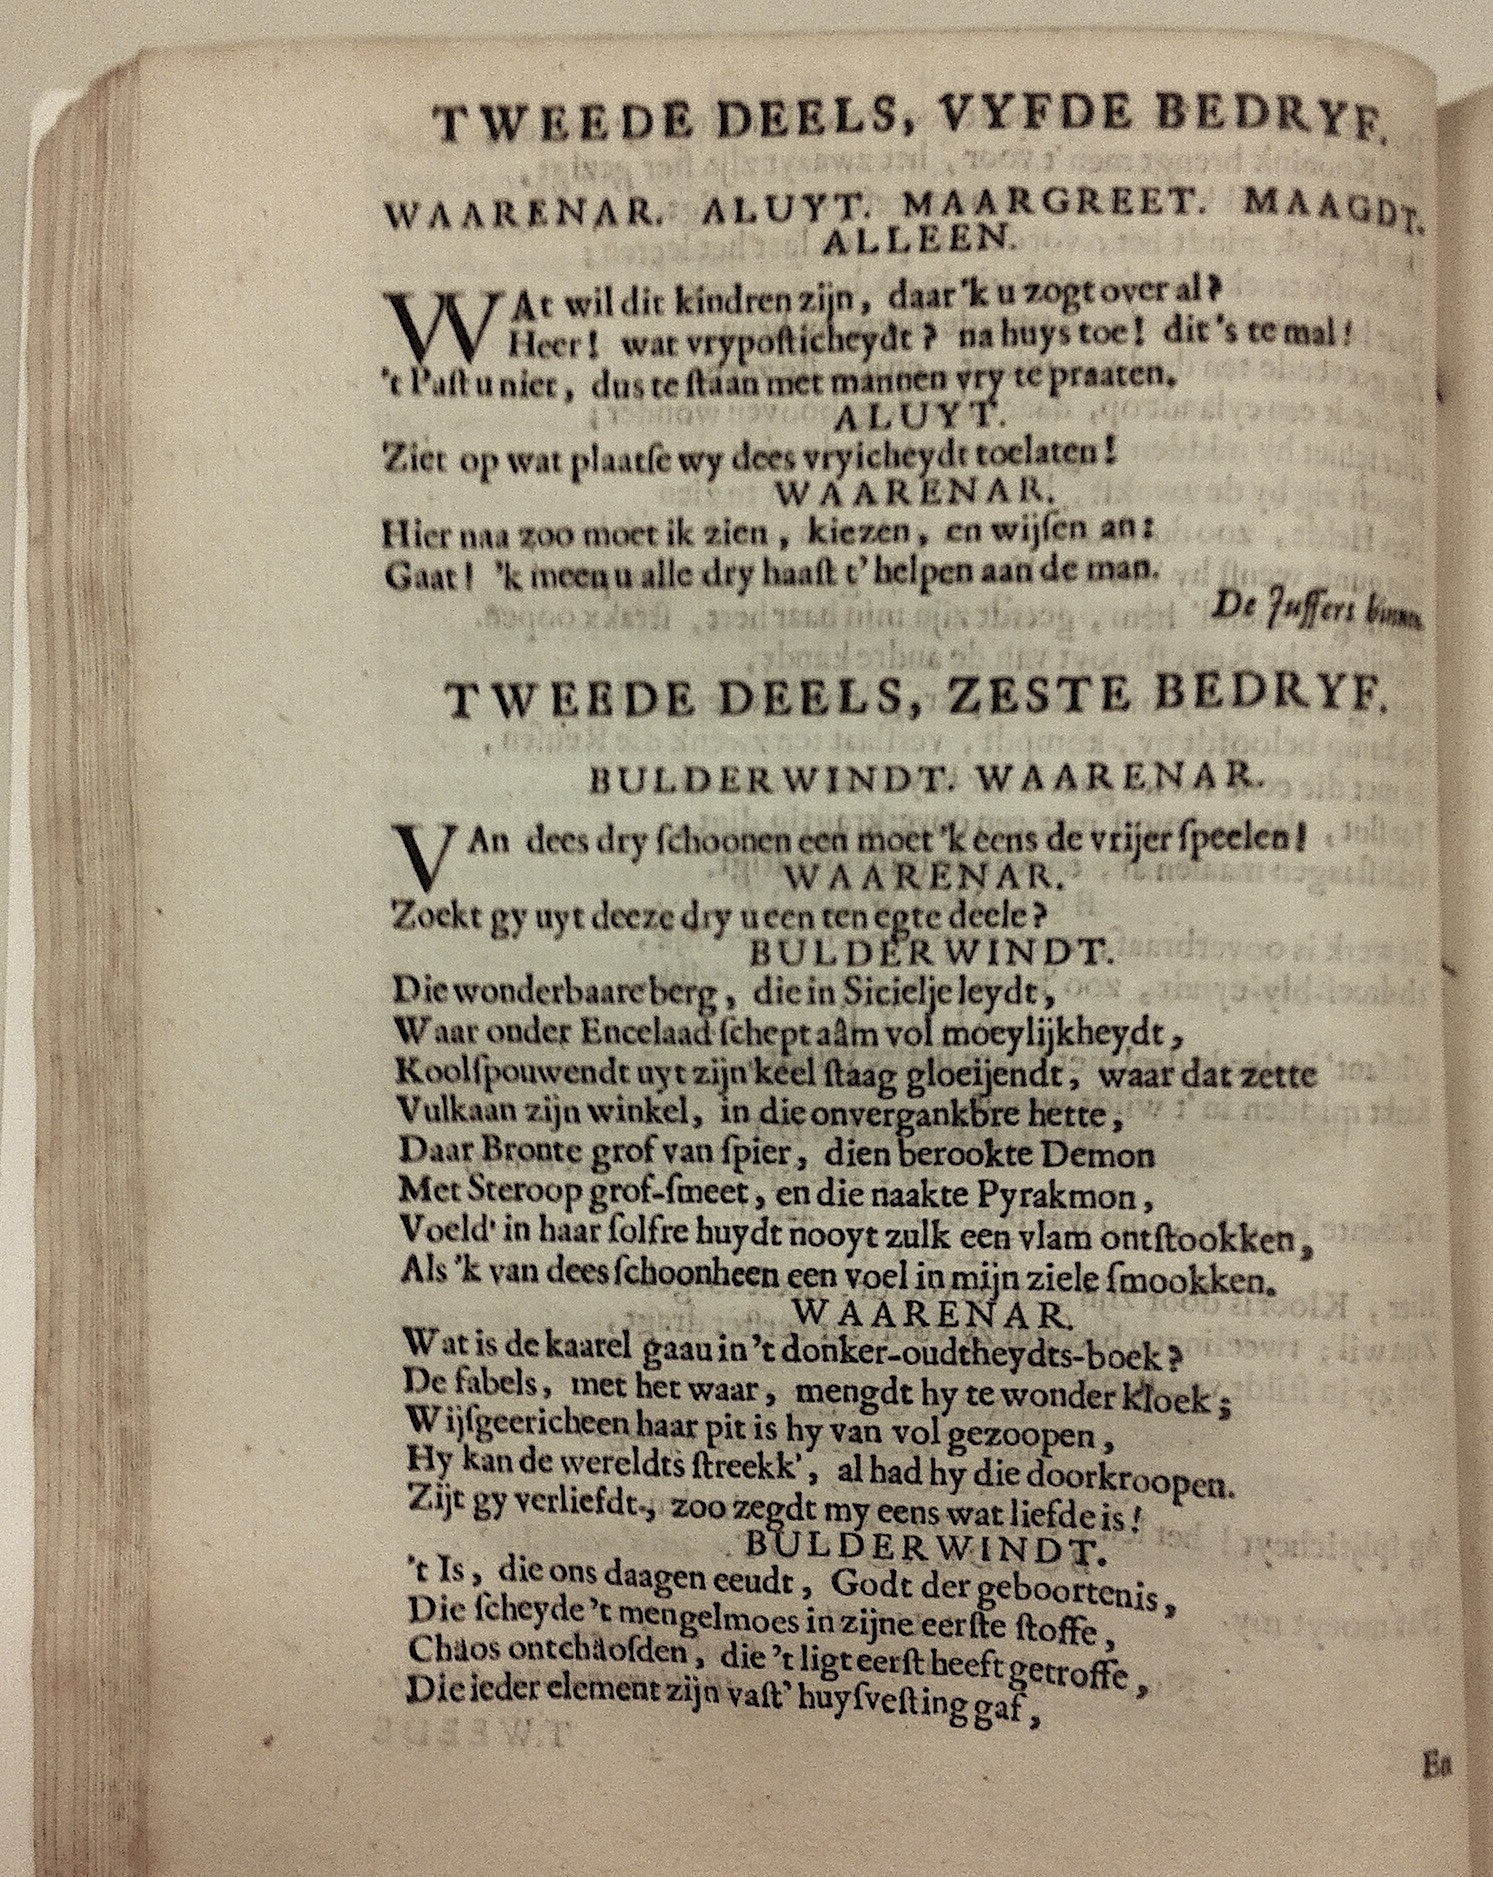 TWEEDE DEELS, VYFDE BEDRYF.
WAARENAR. ALUYT. MAARGREET. MAAGDT.
ALLEEN.
WAt wil dit kindren zijn, daar 'k u zogt over al?
Heer! wat vrypoſticheydt? na huys toe! dit's te mal!
't Paſt u niet, dus te ſtaan met mannen vry te praaten.
ALUYT.
Ziet op wat plaatſe wy dees vryicheydt toelaten!
WAARENAR.
Hier naa zoo moet ik zien, kiezen, en wijſen an:
Gaat! 'k meen u alle dry haaſt t'helpen aan de man.
De Juffers binnen.
TWEEDE DEELS, ZESTE BEDRYF.
BULDERWINDT. WAARENAR.
VAn dees dry ſchoonen een moet 'k eens de vrijer ſpeelen!
WAARENAR.
Zoekt gy uyt deeze dry u een ten egte deele?
BULDERWINDT.
Die wonderbaare berg, die in Sicielje leydt,
Waar onder Encelaad ſchept aâm vol moeylijkheydt,
Koolſpouwendt uyt zijn keel ſtaag gloeijendt, waar dat zette
Vulkaan zijn winkel, in die onvergankbre hette,
Daar Bronte grof van ſpier, dien berookte Demon
Met Steroop grof-ſmeet, en die naakte Pyrakmon,
Voeld' in haar ſolfre huydt nooyt zulk een vlam ontſtookken,
Als 'k van dees ſchoonheen een voel in mijn ziele ſmookken.
WAARENAR.
Wat is de kaarel gaau in 't donker-oudtheydts-boek?
De fabels, met het waar, mengdt hy te wonder kloek;
Wijſgeericheen haar pit is hy van vol gezoopen,
Hy kan de wereldts ſtreekk', al had hy die doorkroopen.
Zijt gy verliefdt, zoo zegdt my eens wat liefde is!
BULDERWINDT.
't Is, die ons daagen eeudt, Godt der geboortenis,
Die ſcheyde 't mengelmoes in zijne eerſte ſtoffe,
Chäos ontchäoſden, die 't ligt eerſt heeft getroffe,
Die ieder element zijn vaſt' huyſveſting gaf,
En